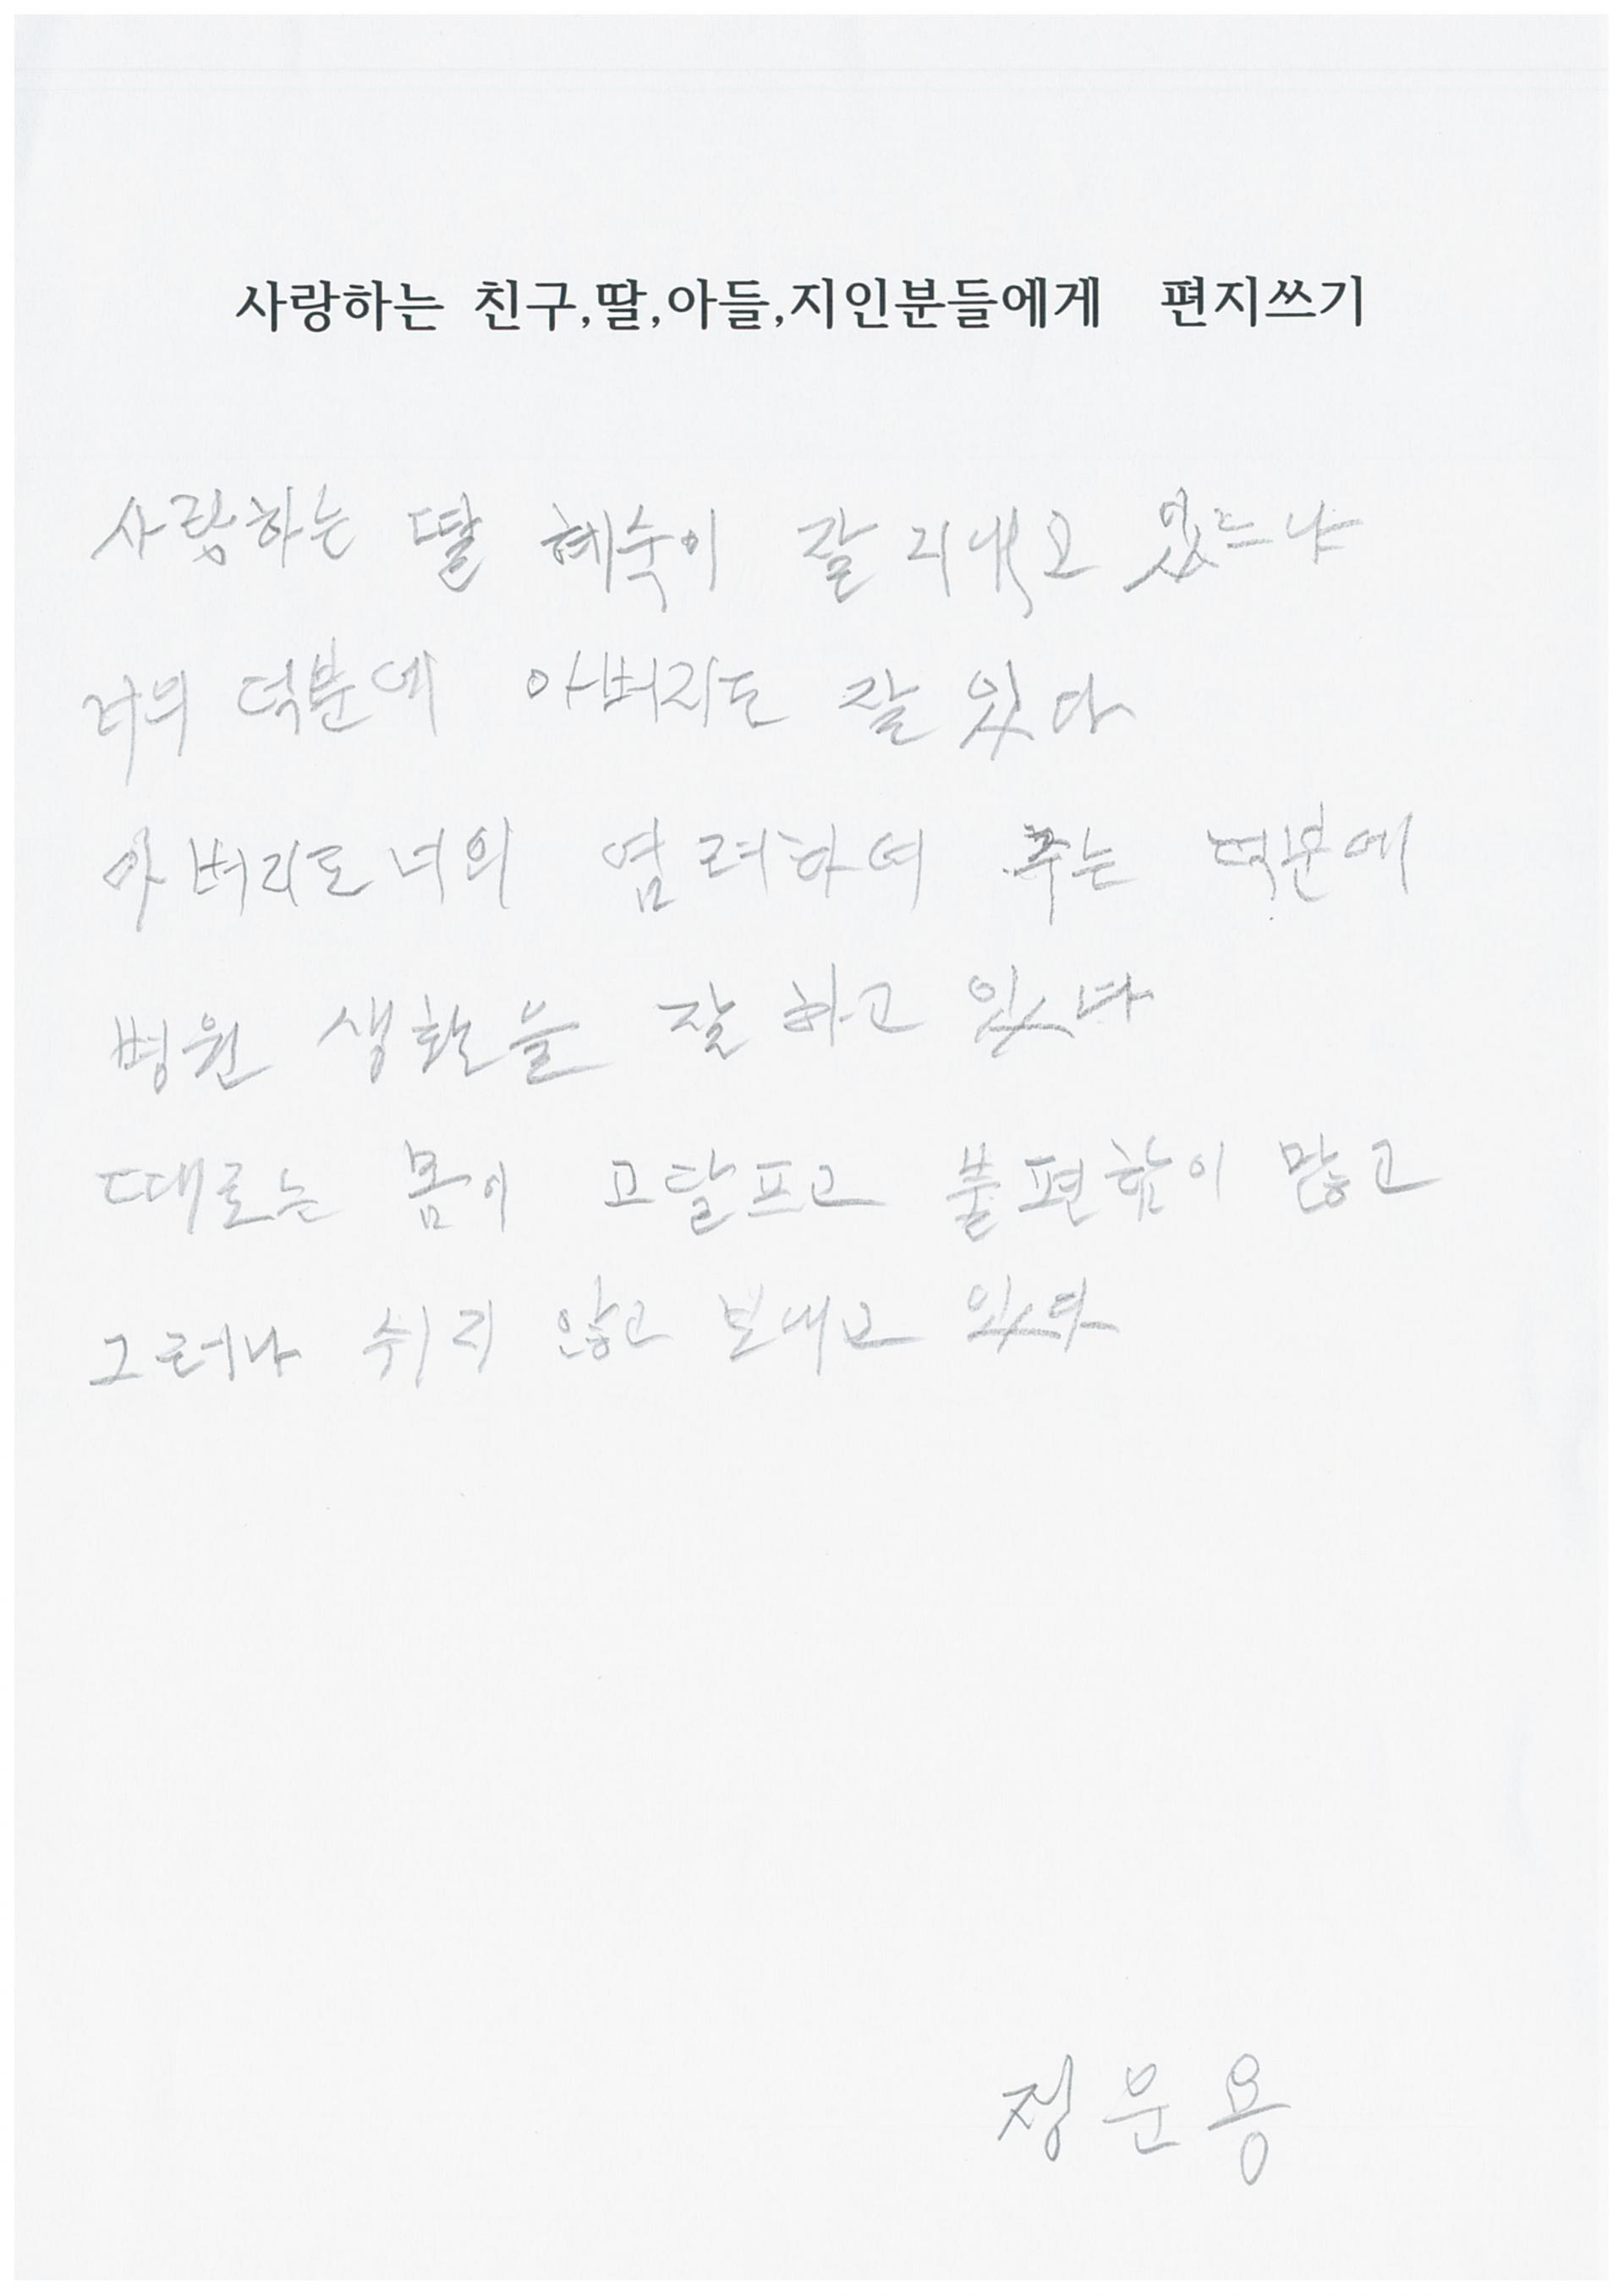 사랑하는 친구,딸,아들,지인분들에게 편지쓰기
사랑하는 딸 혜숙이 잘 지내고 있느냐
너의 덕분에 아버지도 잘 있다
아버지도 너의 염려하여 주는 덕분에
병원 생활을 잘 하고 있다
때로는 몸이 고달프고 불편함이 많고
그러나 쉬지 않고 보내고 있다
정운용